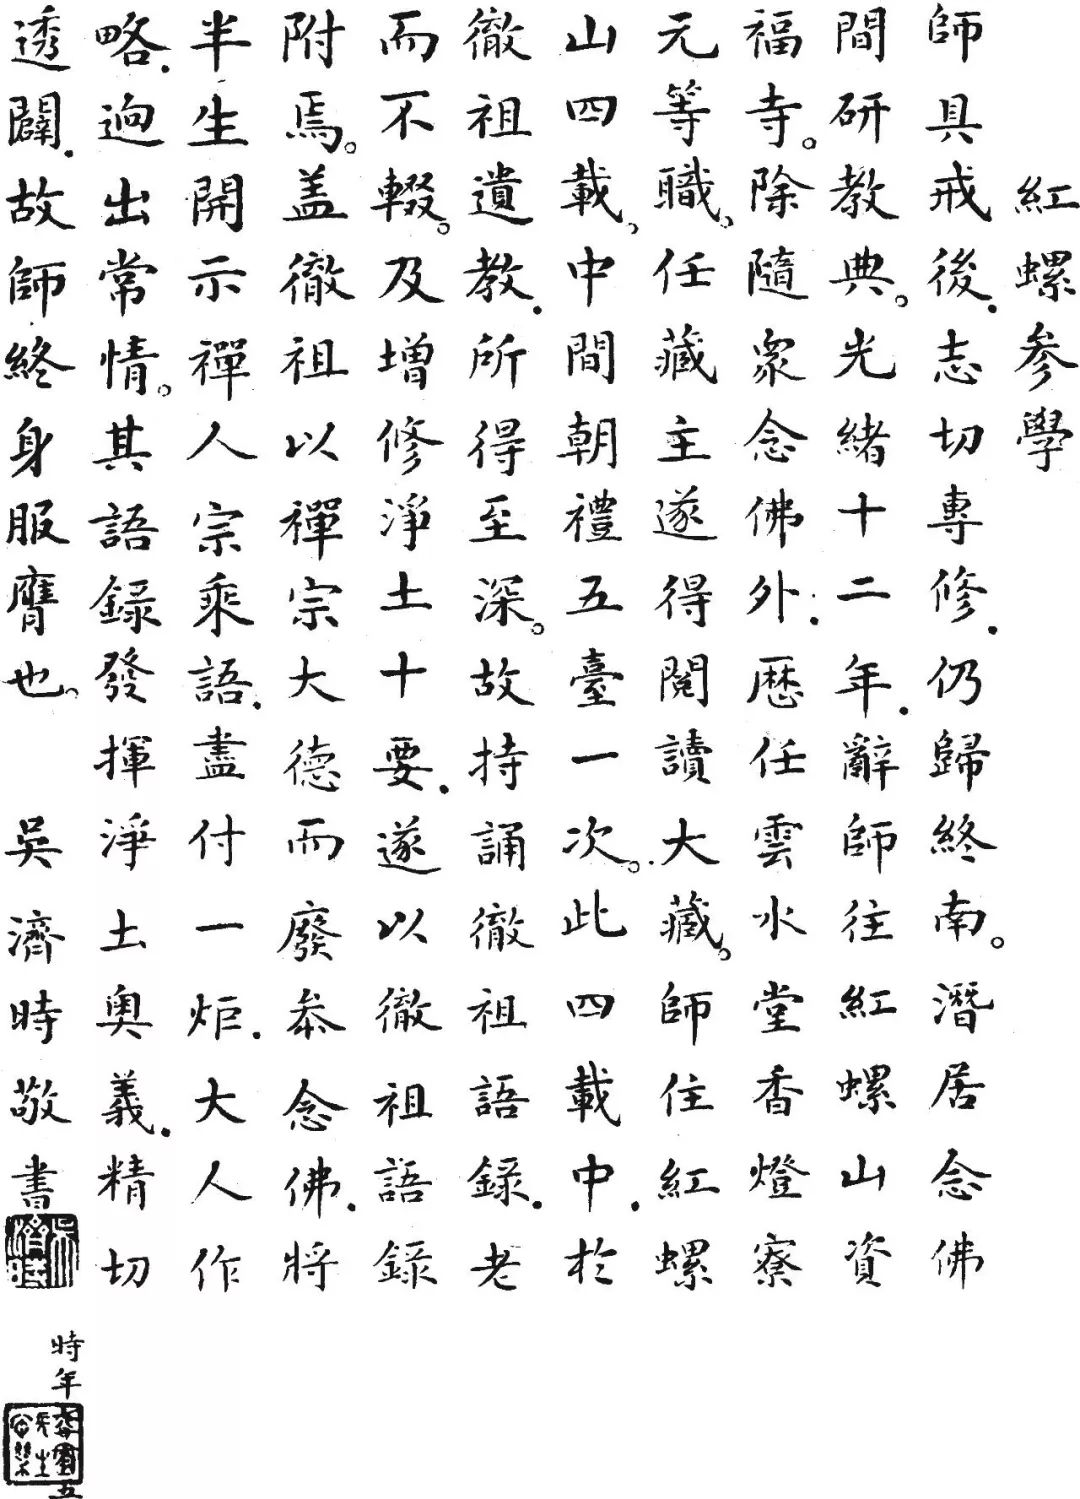 紅螺参學
師具戒後．志切專修．仍歸終南。潛居念佛
間研教典。光緒十二年．辭師往紅螺山資
福寺。除隨眾念佛外．歷任雲水堂香燈寮
元等職。任藏主遂得閱讀大藏。師住紅螺
山四載。中間朝禮五臺一次。此四載中．於
徹祖遺教．所得至深。故持誦徹祖語錄．老
而不輟。及增修淨土十要．遂以徹祖語錄
附焉。盖徹祖以禪宗大德而廢参念佛．將
半生開示禪人宗乘語．盡付一炬．大人作
略．迥出常情。其語錄發揮淨土奧義．精切
透闢．故師終身服膺也。 吳濟時敬書
吳濟時
時年